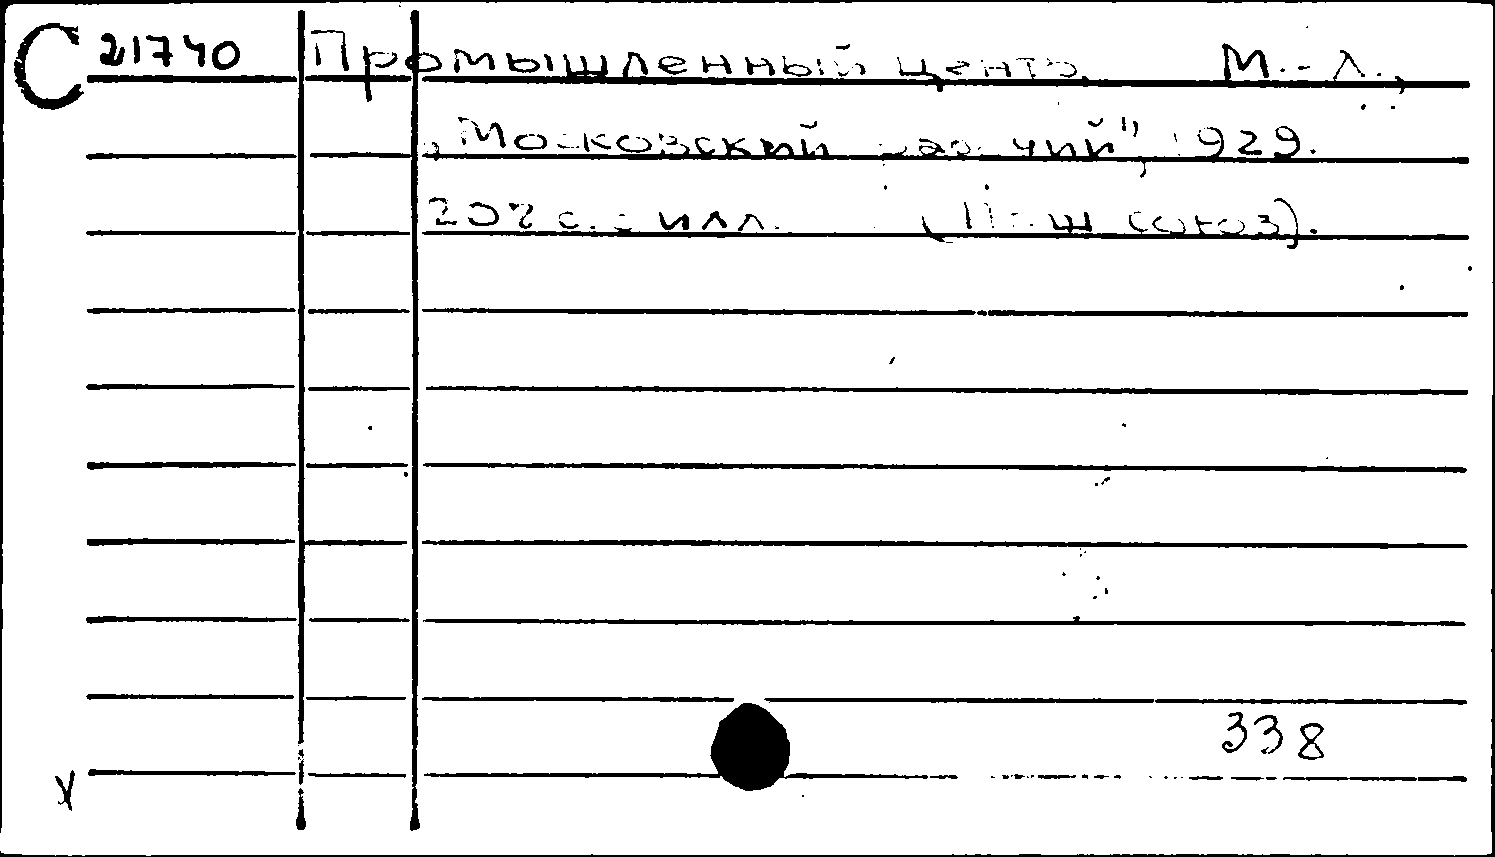 С 21740 Промышленный центр. М.-Л.,
„Московский рабочий", 1929.
202 с. с илл. (Наш союз).
338